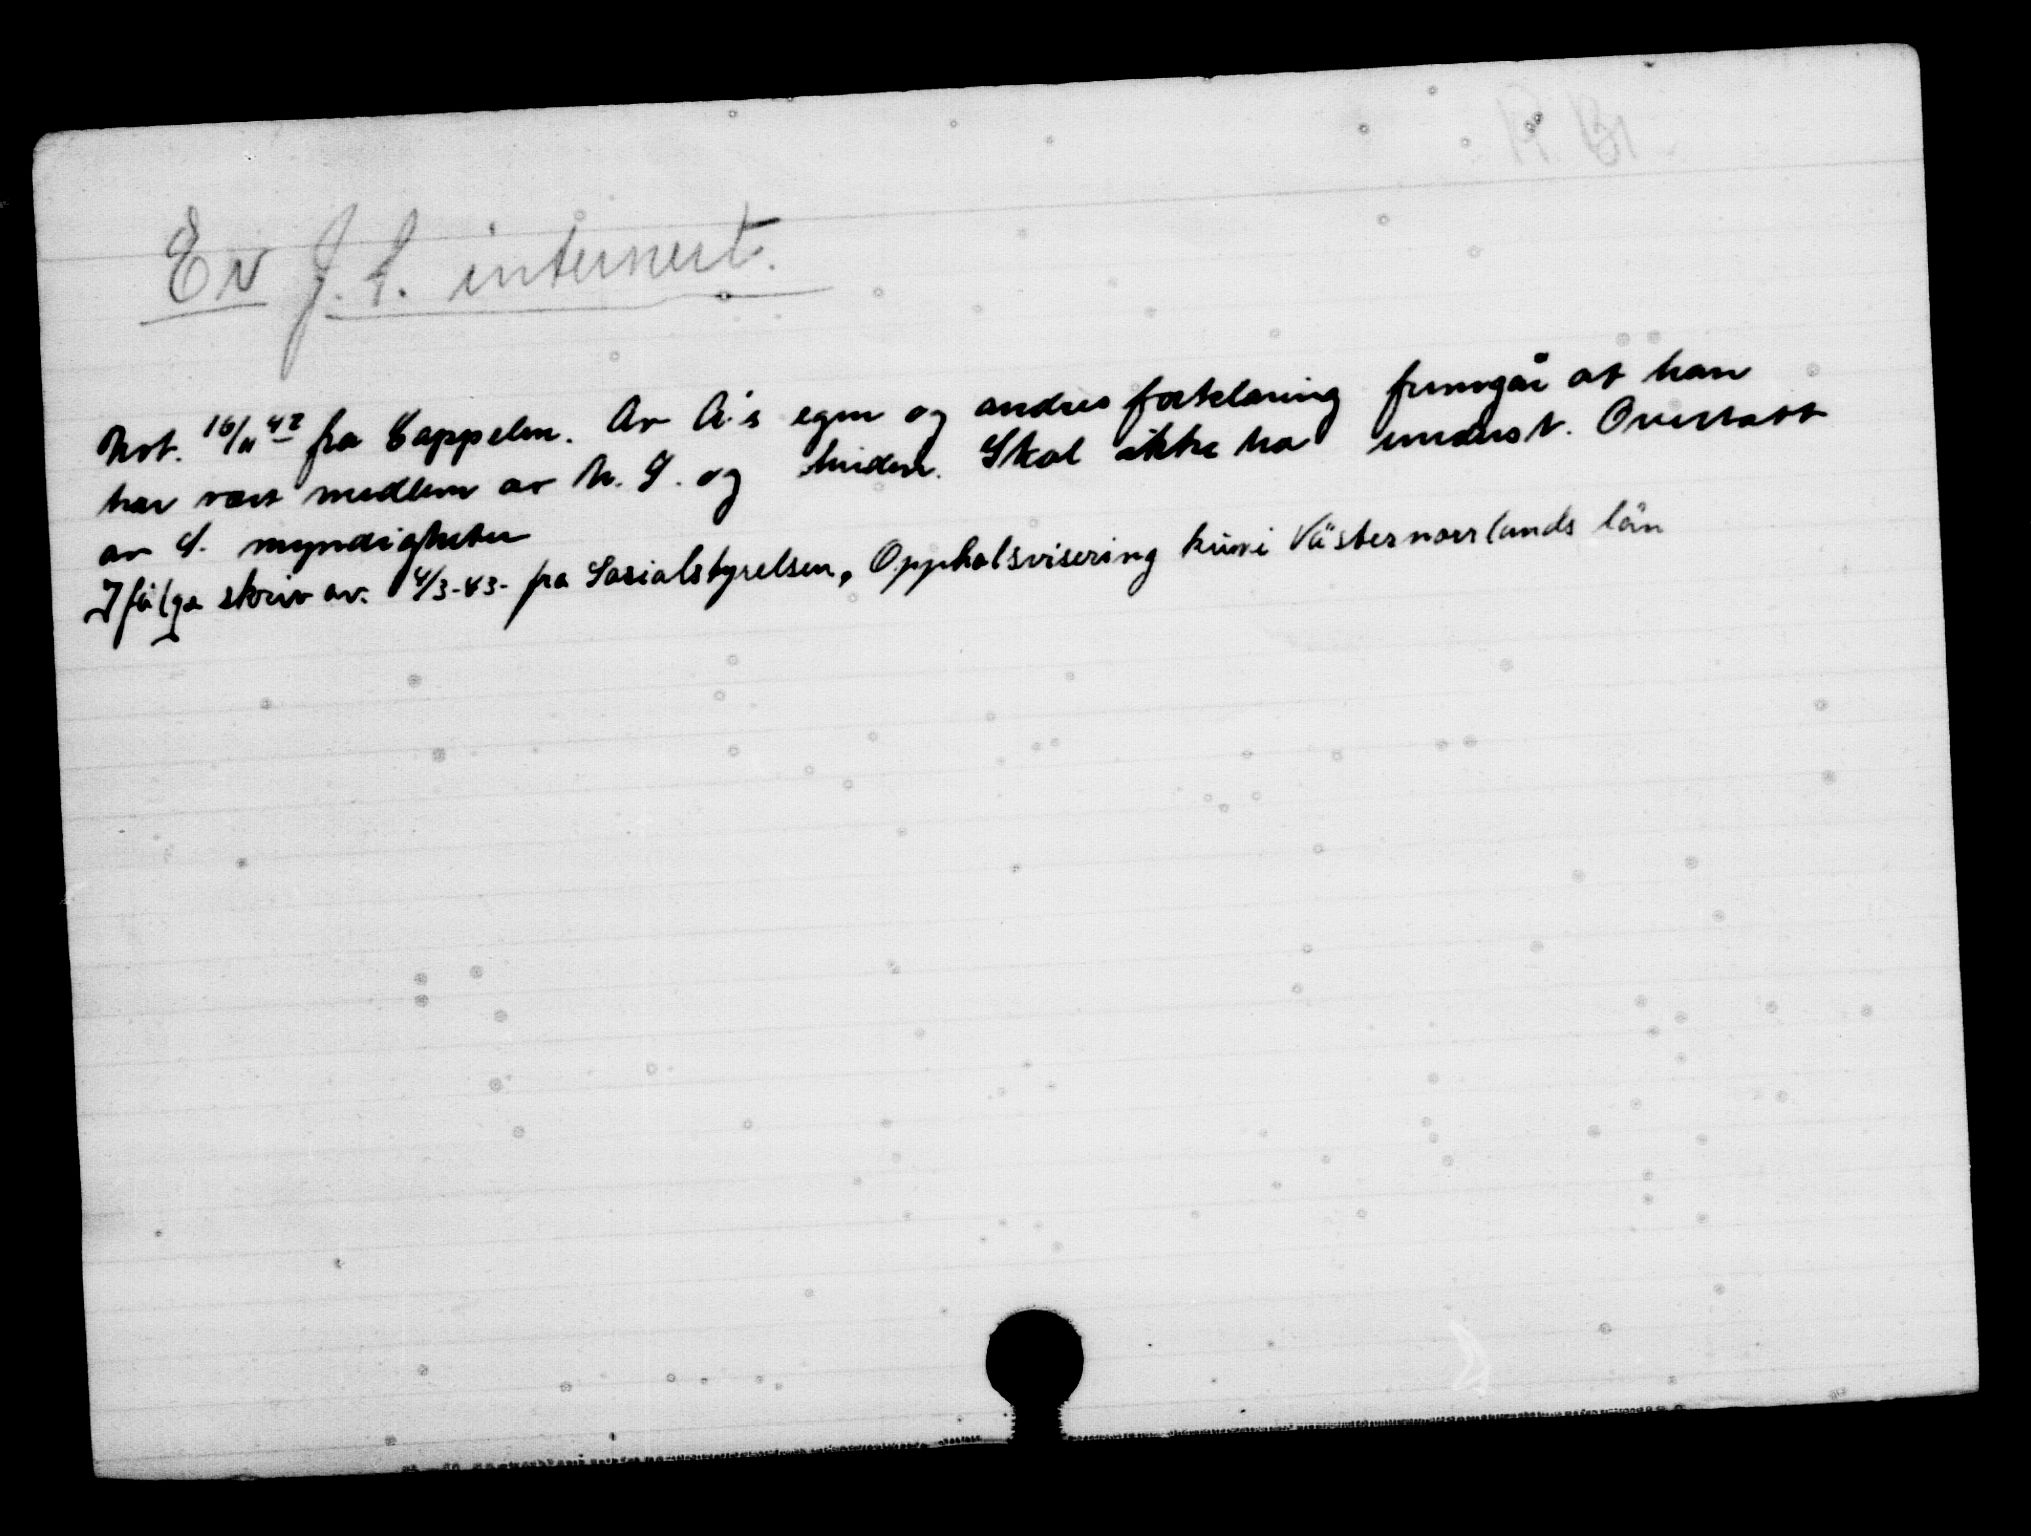 Er J. f. internert.
Not. 16/11 42 fra Cappelen. Av A's egen og andres forklaring fremgår at han
har vært medlem av N. S. og hirden. Skal ikke ha underst. Overlatt
av S. myndigheter
Ifølge skriv av. 4/3-43- fra Sosialstyrelsen, Oppholsvisering kun i Västernorrlands län